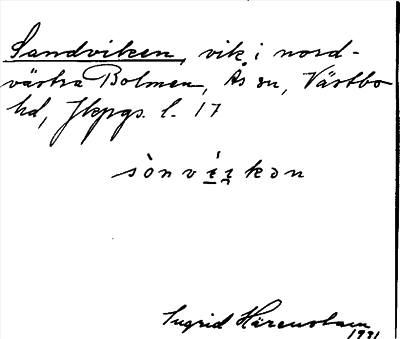 Sandviken, vik i nord-
västra Bolmen, Ås sn, Västbo
hd, Jkpgs. l. 17
sònvíi̯kən
Ingrid Härenstam
1931